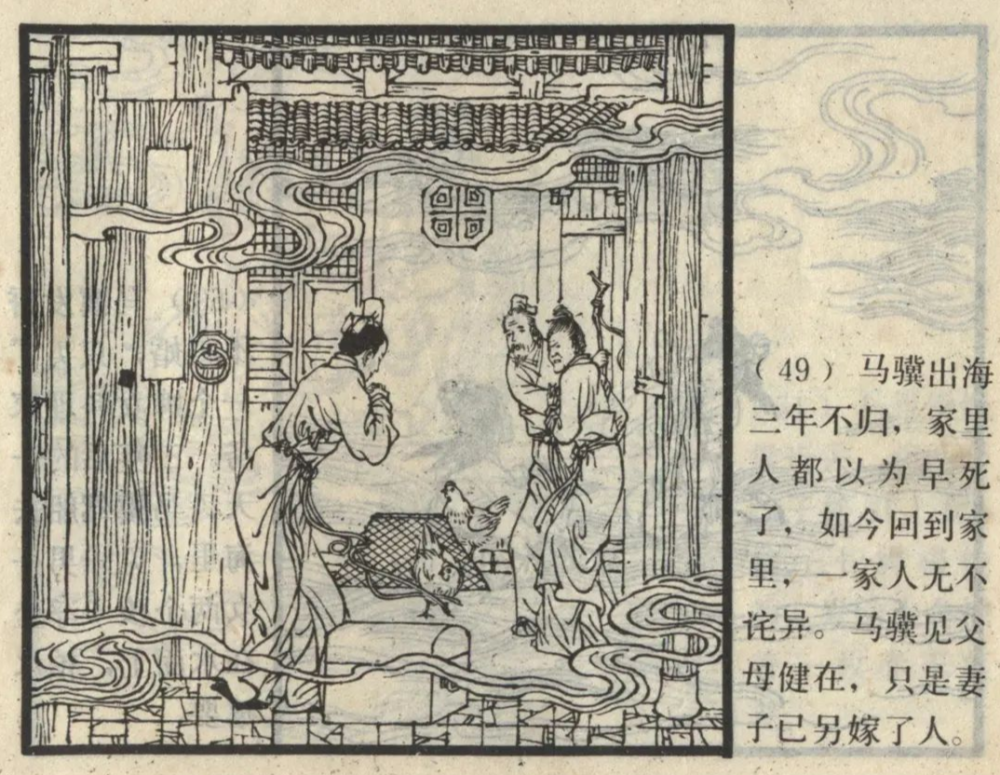 （49）马骥出海
三年不归，家里
人都以为早死
了，如今回到家
里，一家人无不
诧异。马骥见父
母健在，只是妻
子已另嫁了人。